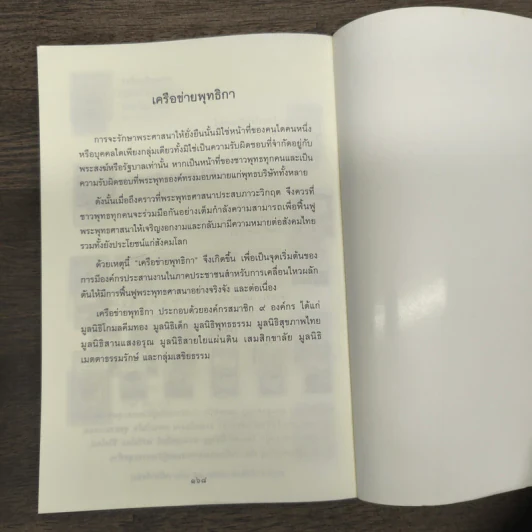 เครือข่ายพุทธิกา
การจะรักษาพระศาสนาให้ยั่งยืนนั้นมิใช่หน้าที่ของคนใดคนหนึ่ง
หรือบุคคลใดเพียงกลุ่มเดียวทั้งมิใช่เป็นความรับผิดชอบที่จำกัดอยู่กับ
พระสงฆ์หรือรัฐบาลเท่านั้น หากเป็นหน้าที่ของชาวพุทธทุกคนและเป็น
ความรับผิดชอบที่พระพุทธองค์ทรงมอบหมายแก่พุทธบริษัททั้งหลาย
ดังนั้นเมื่อถึงคราวที่พระพุทธศาสนาประสบภาวะวิกฤต จึงควรที่
ชาวพุทธทุกคนจะร่วมมือกันอย่างเต็มกำลังความสามารถเพื่อฟื้นฟู
พระพุทธศาสนาให้เจริญงอกงามและกลับมามีความหมายต่อสังคมไทย
รวมทั้งยังประโยชน์แก่สังคมโลก
ด้วยเหตุนี้ "เครือข่ายพุทธิกา" จึงเกิดขึ้น เพื่อเป็นจุดเริ่มต้นของ
การมีองค์กรประสานงานในภาคประชาชนสำหรับการเคลื่อนไหวผลัก
ดันให้มีการฟื้นฟูพระพุทธศาสนาอย่างจริงจัง และต่อเนื่อง
เครือข่ายพุทธิกา ประกอบด้วยองค์กรสมาชิก ๙ องค์กร ได้แก่
มูลนิธิโกมลคีมทอง มูลนิธิเด็ก มูลนิธิพุทธธรรม มูลนิธิสุขภาพไทย
มูลนิธิสานแสงอรุณ มูลนิธิสายใยแผ่นดิน เสมสิกขาลัย มูลนิธิ
เมตตาธรรมรักษ์ และกลุ่มเสขิยธรรม
๑๖๘